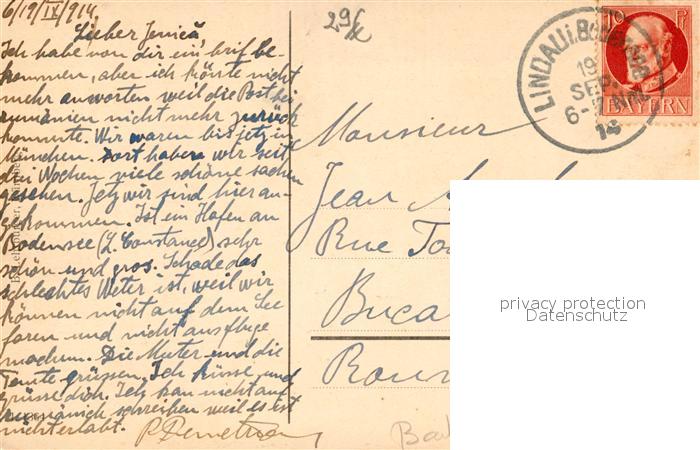 6/19/IX/914
29 fx
Lieber Jenică,
Ich habe von dir ein brif be-
kommen, aber ich könte nicht
mehr antworten weil die Post bei
rumänien nicht mehr zurück
konnte. Wir waren bis jetz in
München. Dort haben wir seit
drei Wochen viele schöne sachen
gesehen. Jetz wir sind hier an-
gekommen. Ist ein Hafen an
Bodensee (L. Constance) sehr
schön und gros. Schade das
schlechtes Weter ist, weil wir
können nicht auf dem See
faren und nicht ausflüge
machen. Die Muter und die
Tante grüssen. Ich küsse und
grüsse dich. Ich kan nicht auf
rumänisch schreiben weil es ist
nicht erlabt.
P. Demetrian
LINDAU i. Bodensee
19
SEP.
6-7 NM.
14
10 Pf
BAYERN
Monsieur
Jean
Rue
Buca
Roum
privacy protection
Datenschutz